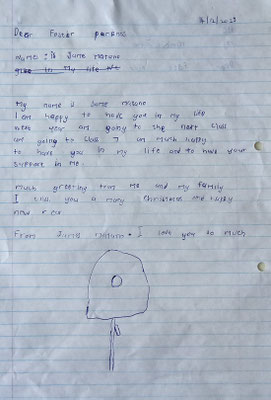 14/12/2023
Dear Foster parents
name: is June
in my life
My name is June
I am happy to have you in my life
year am going to the next class
am going to class 7 am much happy
to have you in my life and to have your
support in me.
much greeting from me and my family
I you a mary Christmas and happy
new year
From June I love you so much